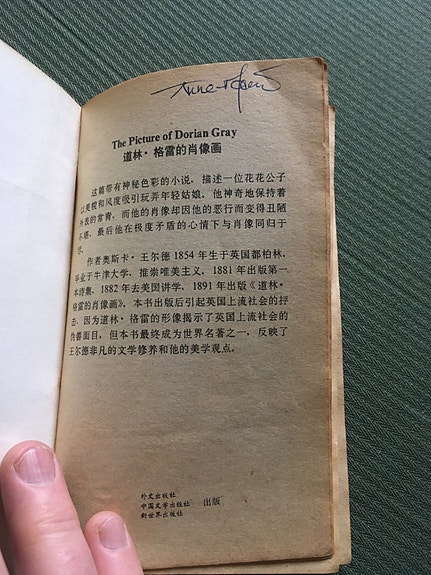 The Picture of Dorian Gray
道林·格雷的肖像画
这篇带有神秘色彩的小说，描述一位花花公子
以美貌和风度吸引玩弄年轻姑娘。他神奇地保持着
外表的常青，而他的肖像却因他的恶行而变得丑陋
不堪，最后他在极度矛盾的心情下与肖像同归于
尽。
作者奥斯卡·王尔德 1854 年生于英国都柏林，
毕业于牛津大学，推崇唯美主义，1881 年出版第一
本诗集，1882 年去美国讲学，1891 年出版《道林·
格雷的肖像画》。本书出版后引起英国上流社会的抨
击，因为道林·格雷的形像揭示了英国上流社会的
伪善面目，但本书最终成为世界名著之一，反映了
王尔德非凡的文学修养和他的美学观点。
外文出版社
中国文学出版社 出版
新世界出版社